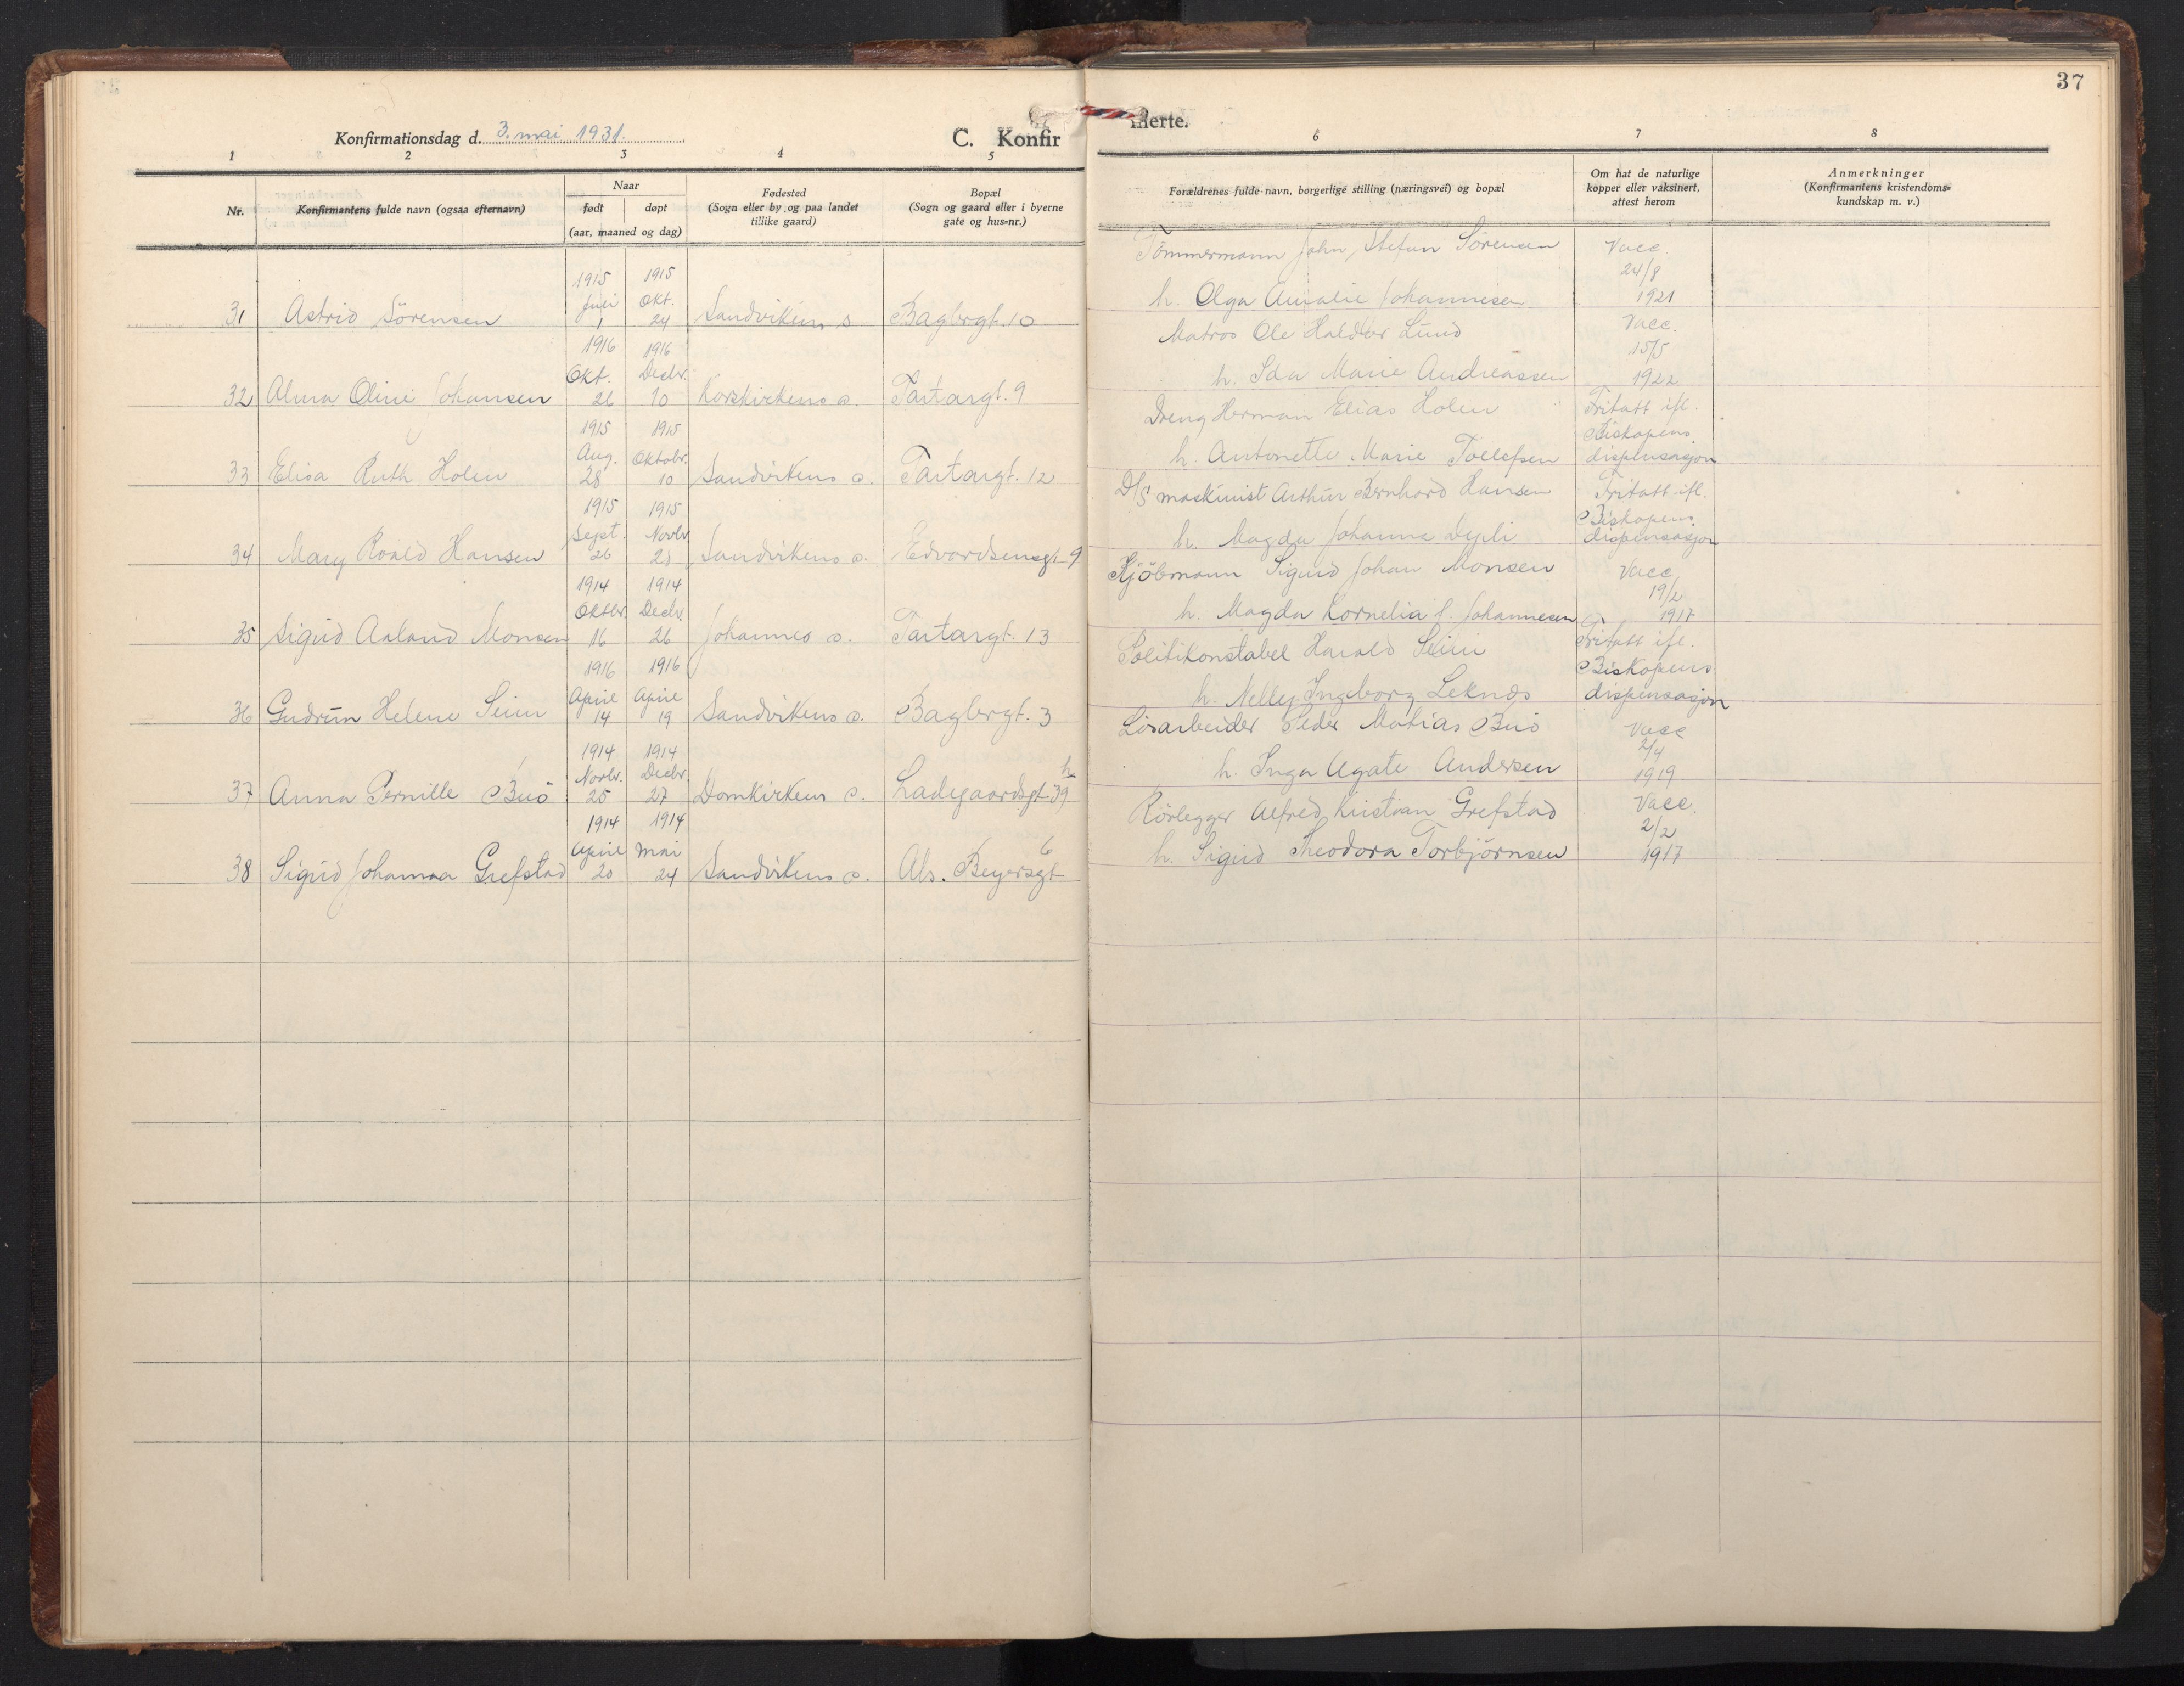 37
Konfirmationsdag d. 3. mai 1931.
C. Konfir
merte.
1 2 3 4 5 6 7 8
Nr.
Konfirmantens fulde navn (ogsaa efternavn)
Naar
født
døpt
(aar, maaned og dag)
Fødested
(Sogn eller by og paa landet
tillike gaard)
Bopæl
(Sogn og gaard eller i byerne
gate og hus-nr.)
Forældrenes fulde navn, borgerlige stilling (næringsvei) og bopæl
Om hat de naturlige
kopper eller vaksinert,
attest herom
Anmerkninger
(Konfirmantens kristendoms-
kundskap m. v.)
31 Astrid Sörensen 1915 Juli 1 1915 Okt. 24 Sandvikens s. Bagbergt. 10
Tömmermann John Stefan Sörensen
h. Olga Amalie Johannesen
Vacc. 24/8 1921
32 Alma Oline Johansen 1916 Okt. 26 1916 Decbr. 10 Korskirkens s. Tartargt. 9
Matros Ole Haldor Lund
h. Ida Marie Andreassen
Vacc. 15/5 1922
33 Elisa Ruth Holen 1915 Aug. 28 1915 Oktobr. 10 Sandvikens s. Tartargt. 12
Dreng Herman Elias Holen
h. Antonette Marie Tollefsen
Fritatt ifl. Biskopens dispensasjon
34 Mary Roald Hansen 1915 Sept. 26 1915 Novbr. 28 Sandvikens s. Edvardsensgt 9
D/S maskinist Arthur Bernhard Hansen
h. Magda Johanna
Fritatt ifl. Biskopens dispensasjon
35 Sigrid Aaland Monsen 1914 Oktbr. 16 1914 Decbr. 26 Johannes s. Tartargt. 13
Kjöbmann Sigurd Johan Monsen
h. Magda Kornelia f. Johannesen
Vacc. 19/2 1917
36 Gudrun Helene Seim 1916 April 14 1916 April 19 Sandvikens s. Bagbergt. 3
Politikonstabel Harald Seim
h. Nelly Ingeborg Leknes
Fritatt ifl. Biskopens dispensasjon
37 Anna Pernille Buö 1914 Novbr. 25 1914 Decbr. 27 Domkirkens s. Ladegaardsgt 39 h
Lösarbeider Peder Matias Buö
h. Inga Agate Andersen
Vacc 2/4 1919
38 Sigrid Johanna Grefstad 1914 April 20 1914 Mai 24 Sandvikens s. Abs. Beyersgt 6
Rörlegger Alfred Kristian Grefstad
h. Sigrid Theodora Torbjörnsen
Vacc. 2/2 1917